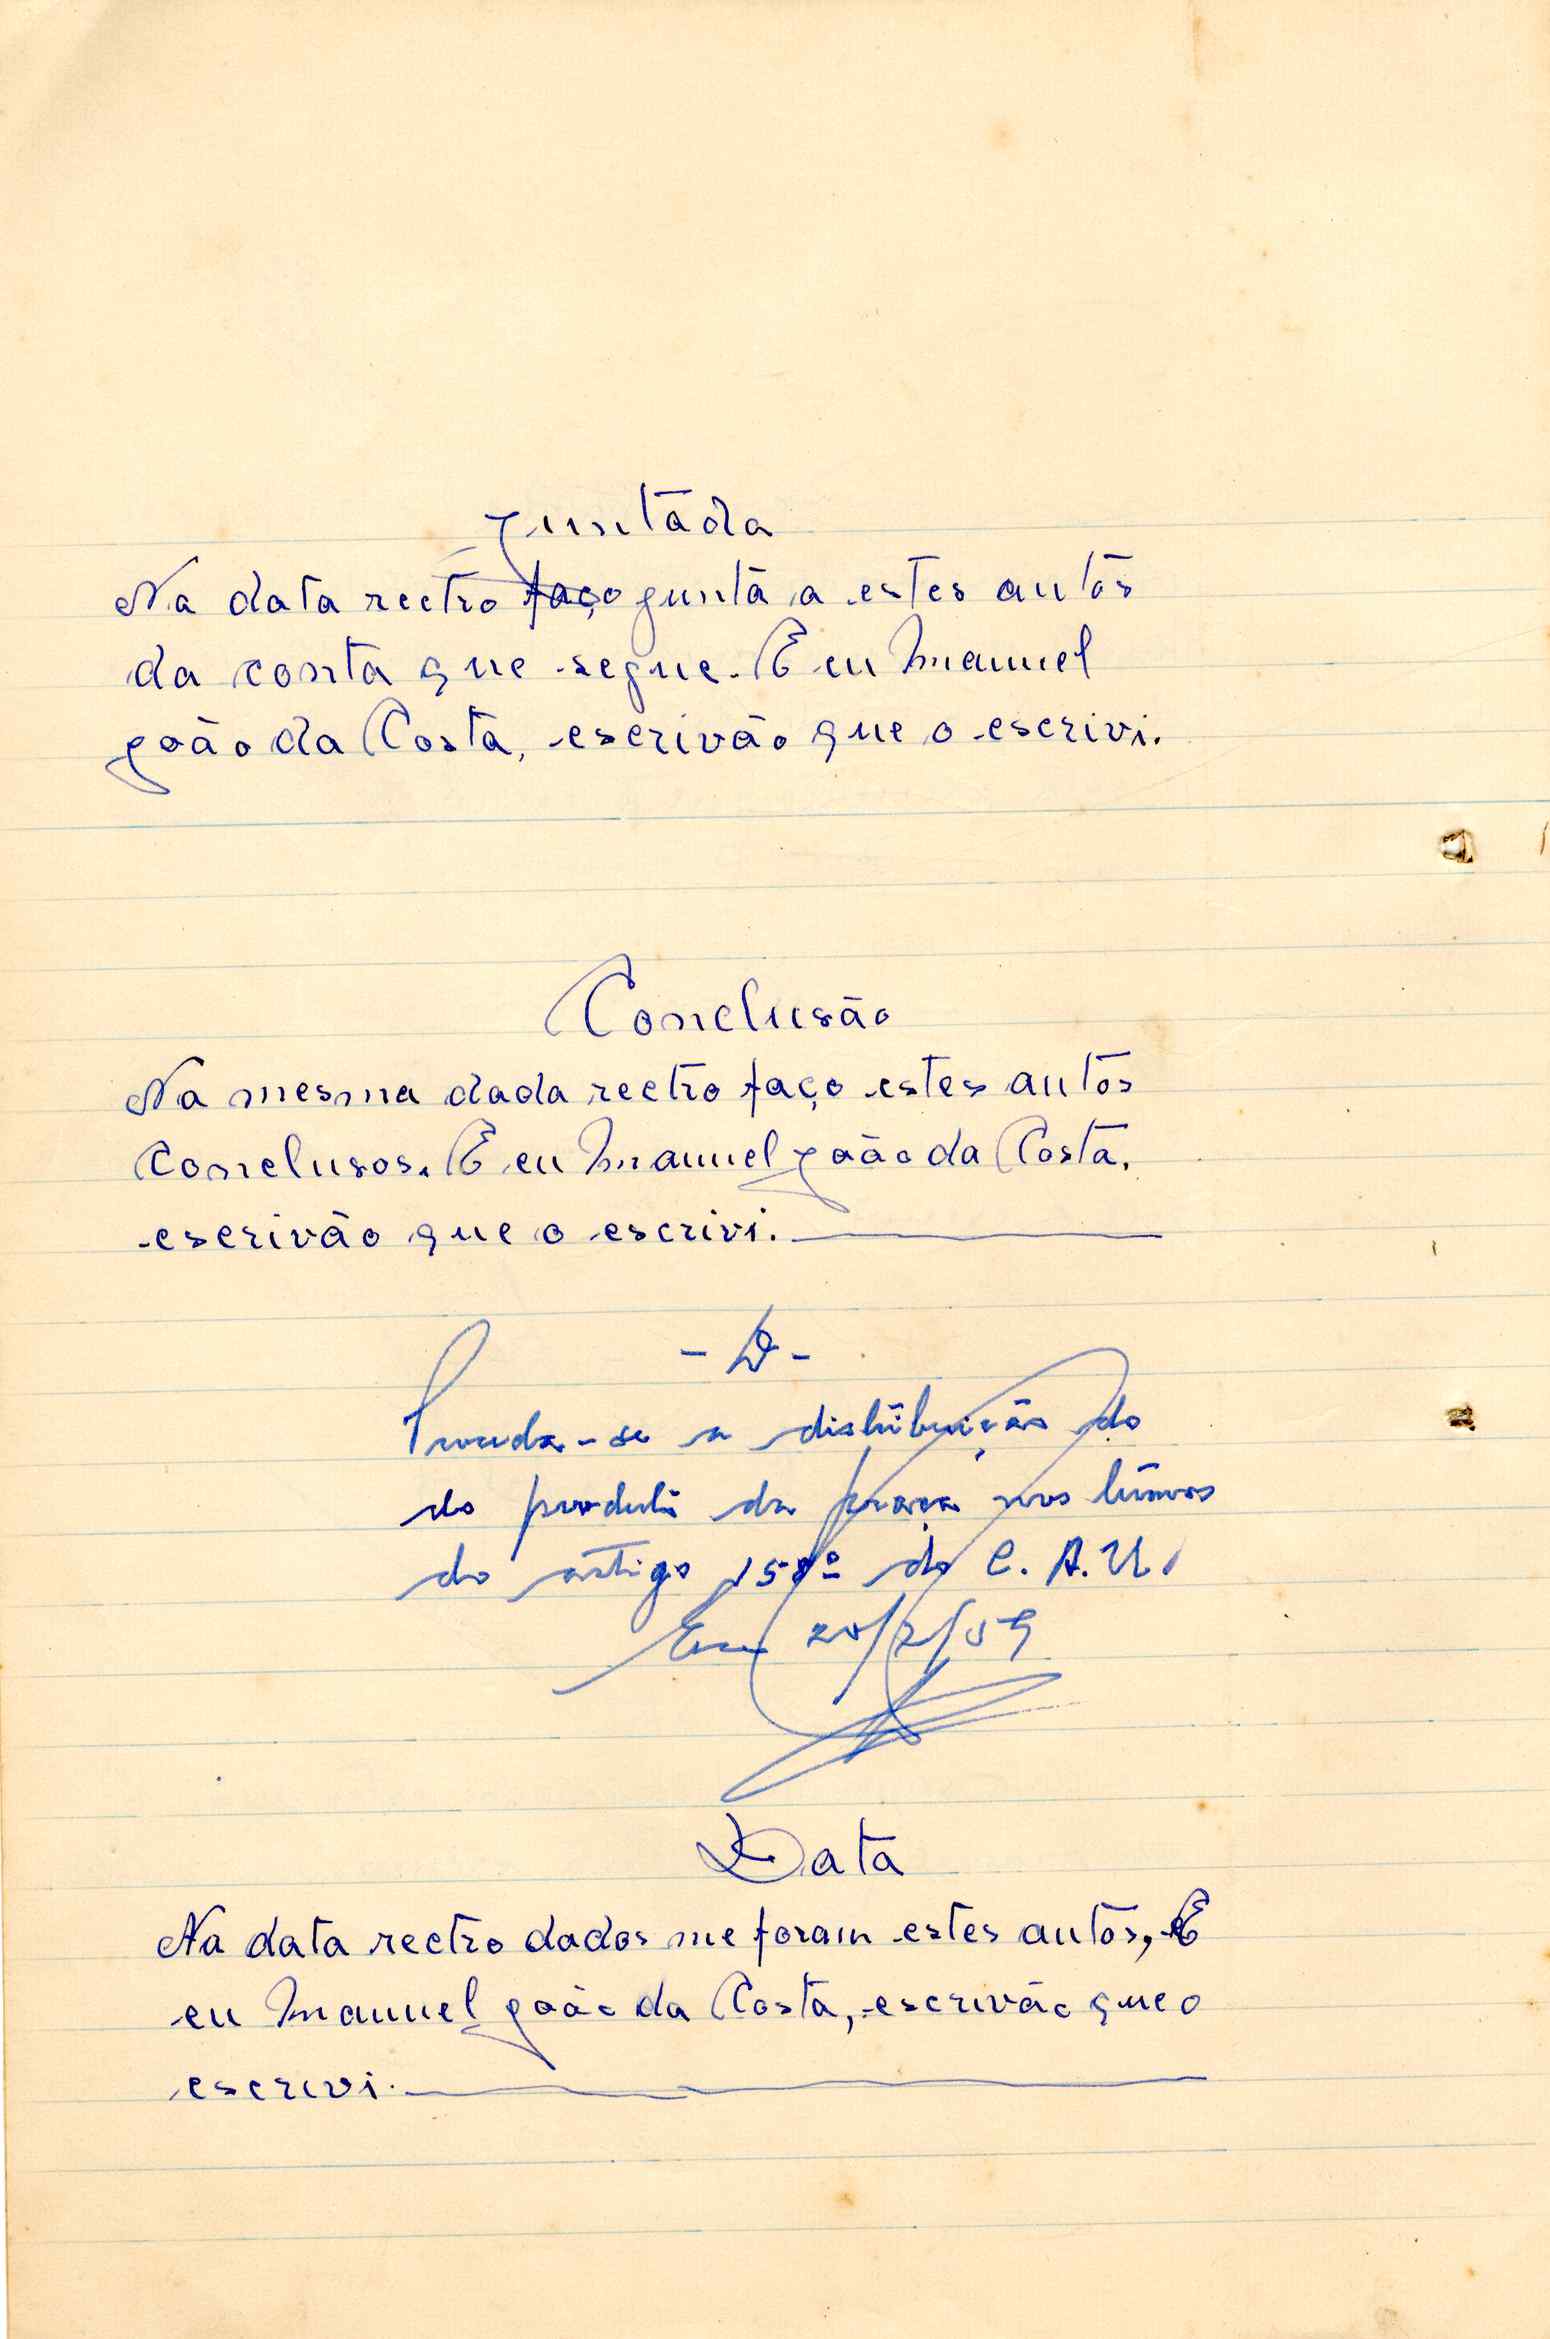 Juntada
Na data rectro faço junta a estes autos
da conta que segue. E eu Manuel
João da Costa, escrivão que o escrivi.
Conclusão
Na mesma dada rectro faço estes autos
conclusos. E eu Manuel João da Costa,
escrivão que o escrivi.
- D -
Proceda-se a distribuição do
do produto da praça nos termos
do artigo 158º do C. A. U.
Em 20/2/59
Data
Na data rectro dados me foram estes autos, E
eu Manuel João da Costa, escrivão que o
escrivi.